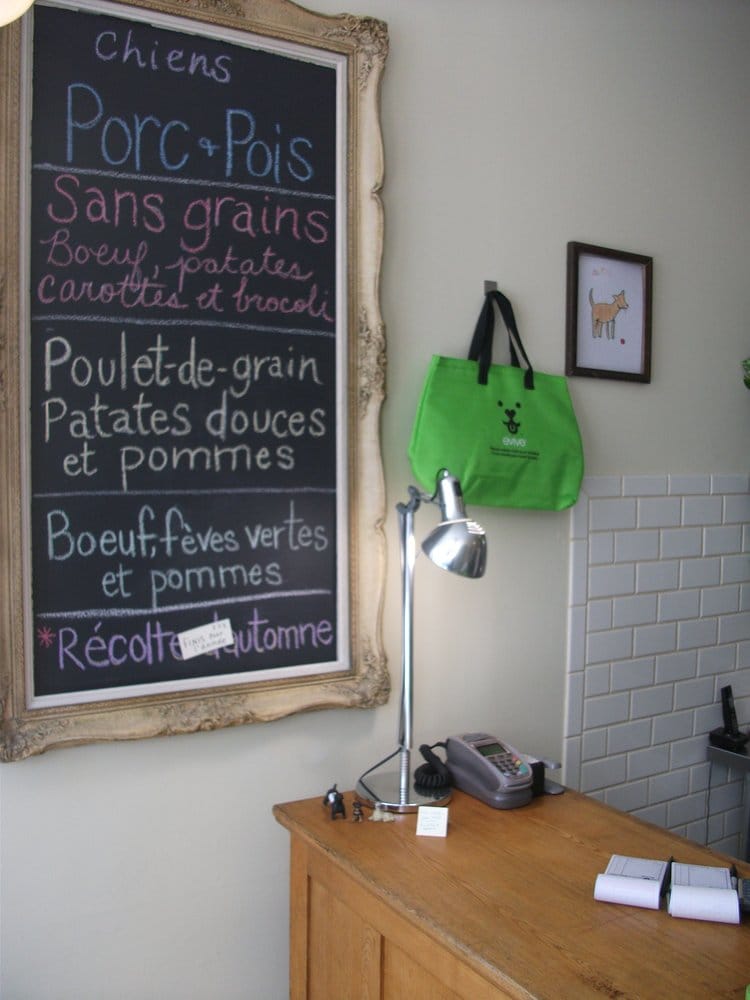 Chiens
Porc & Pois
Sans grains
Boeuf, patates
carottes et brocoli
Poulet-de-grain
Patates douces
et pommes
Boeuf, fèves vertes
et pommes
*Récolte d'automne
FINIS POUR
L'ANNÉE
evive